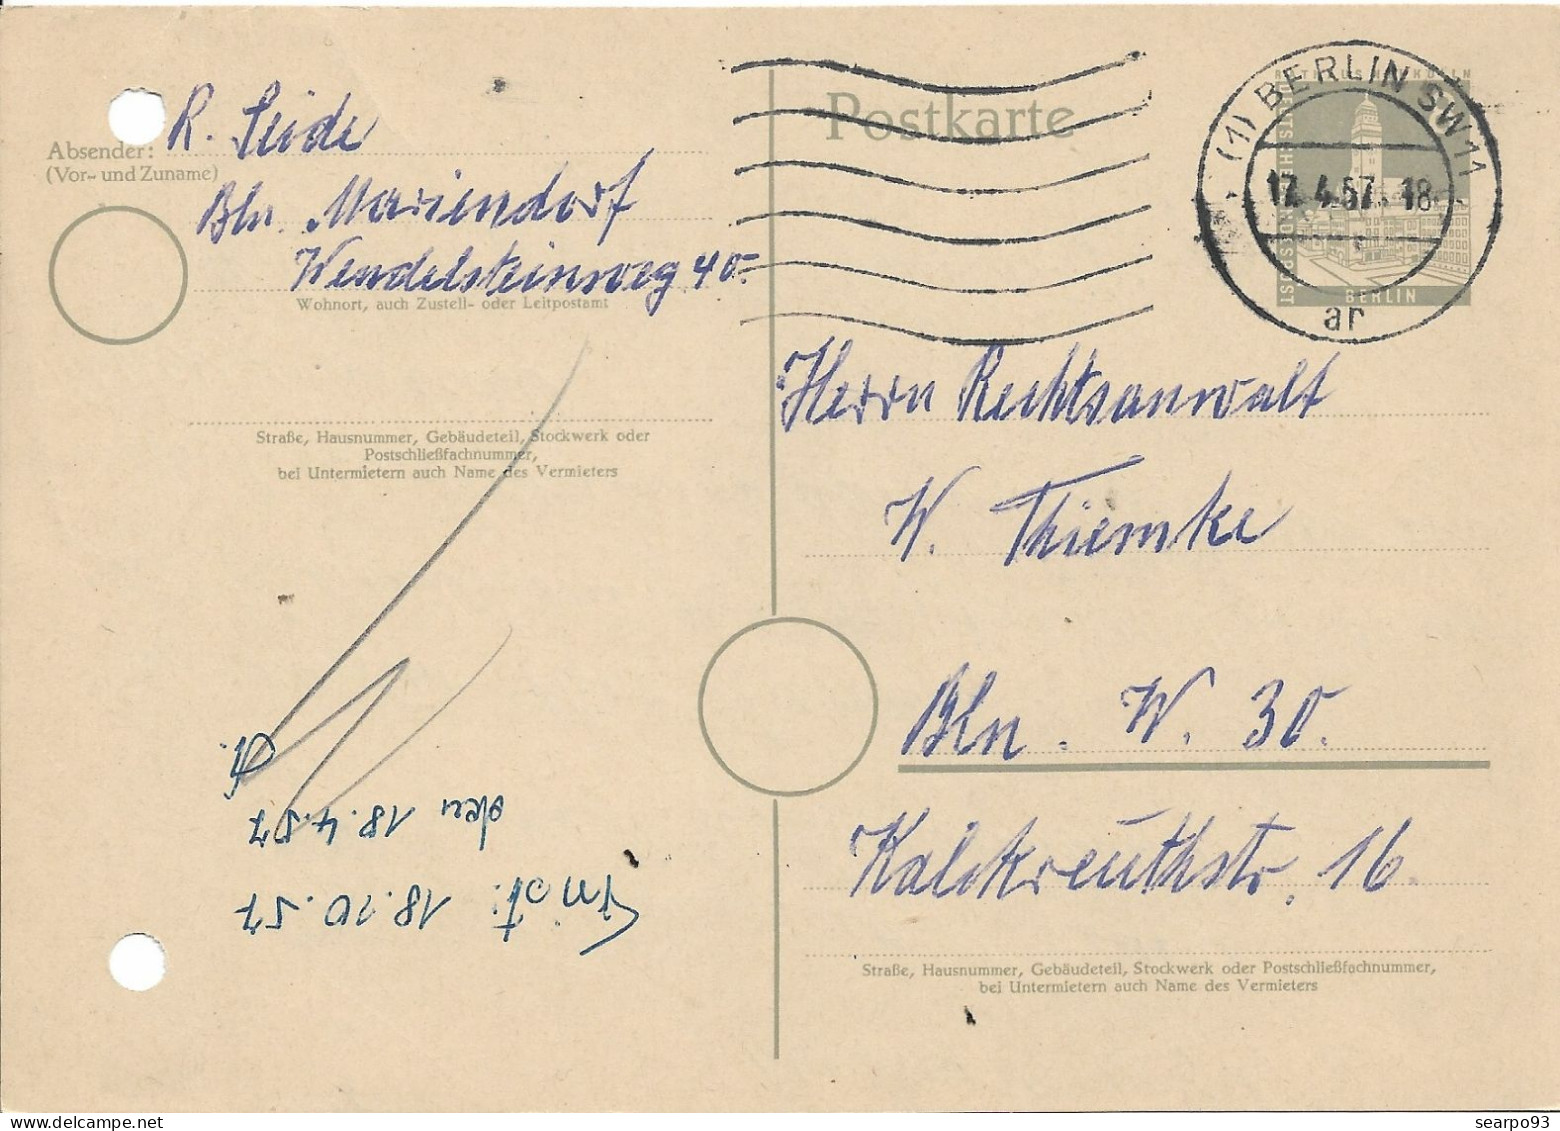 Absender: R. Seide
(Vor- und Zuname)
Bln. Mariendorf
Wendelsteinweg 40
Wohnort, auch Zustell- oder Leitpostamt
Straße, Hausnummer, Gebäudeteil, Stockwerk oder
Postschließfachnummer,
bei Untermietern auch Name des Vermieters
Postkarte
(1) BERLIN SW 11
17.4.57.-18
ar
RATHAUS NEUKÖLLN
BERLIN
Herrn Rechtsanwalt
W. Thiemke
Bln. W. 30.
Kalckreuthstr. 16
Straße, Hausnummer, Gebäudeteil, Stockwerk oder Postschließfachnummer,
bei Untermietern auch Name des Vermieters
18.10.57
den 18.4.57
searpo93